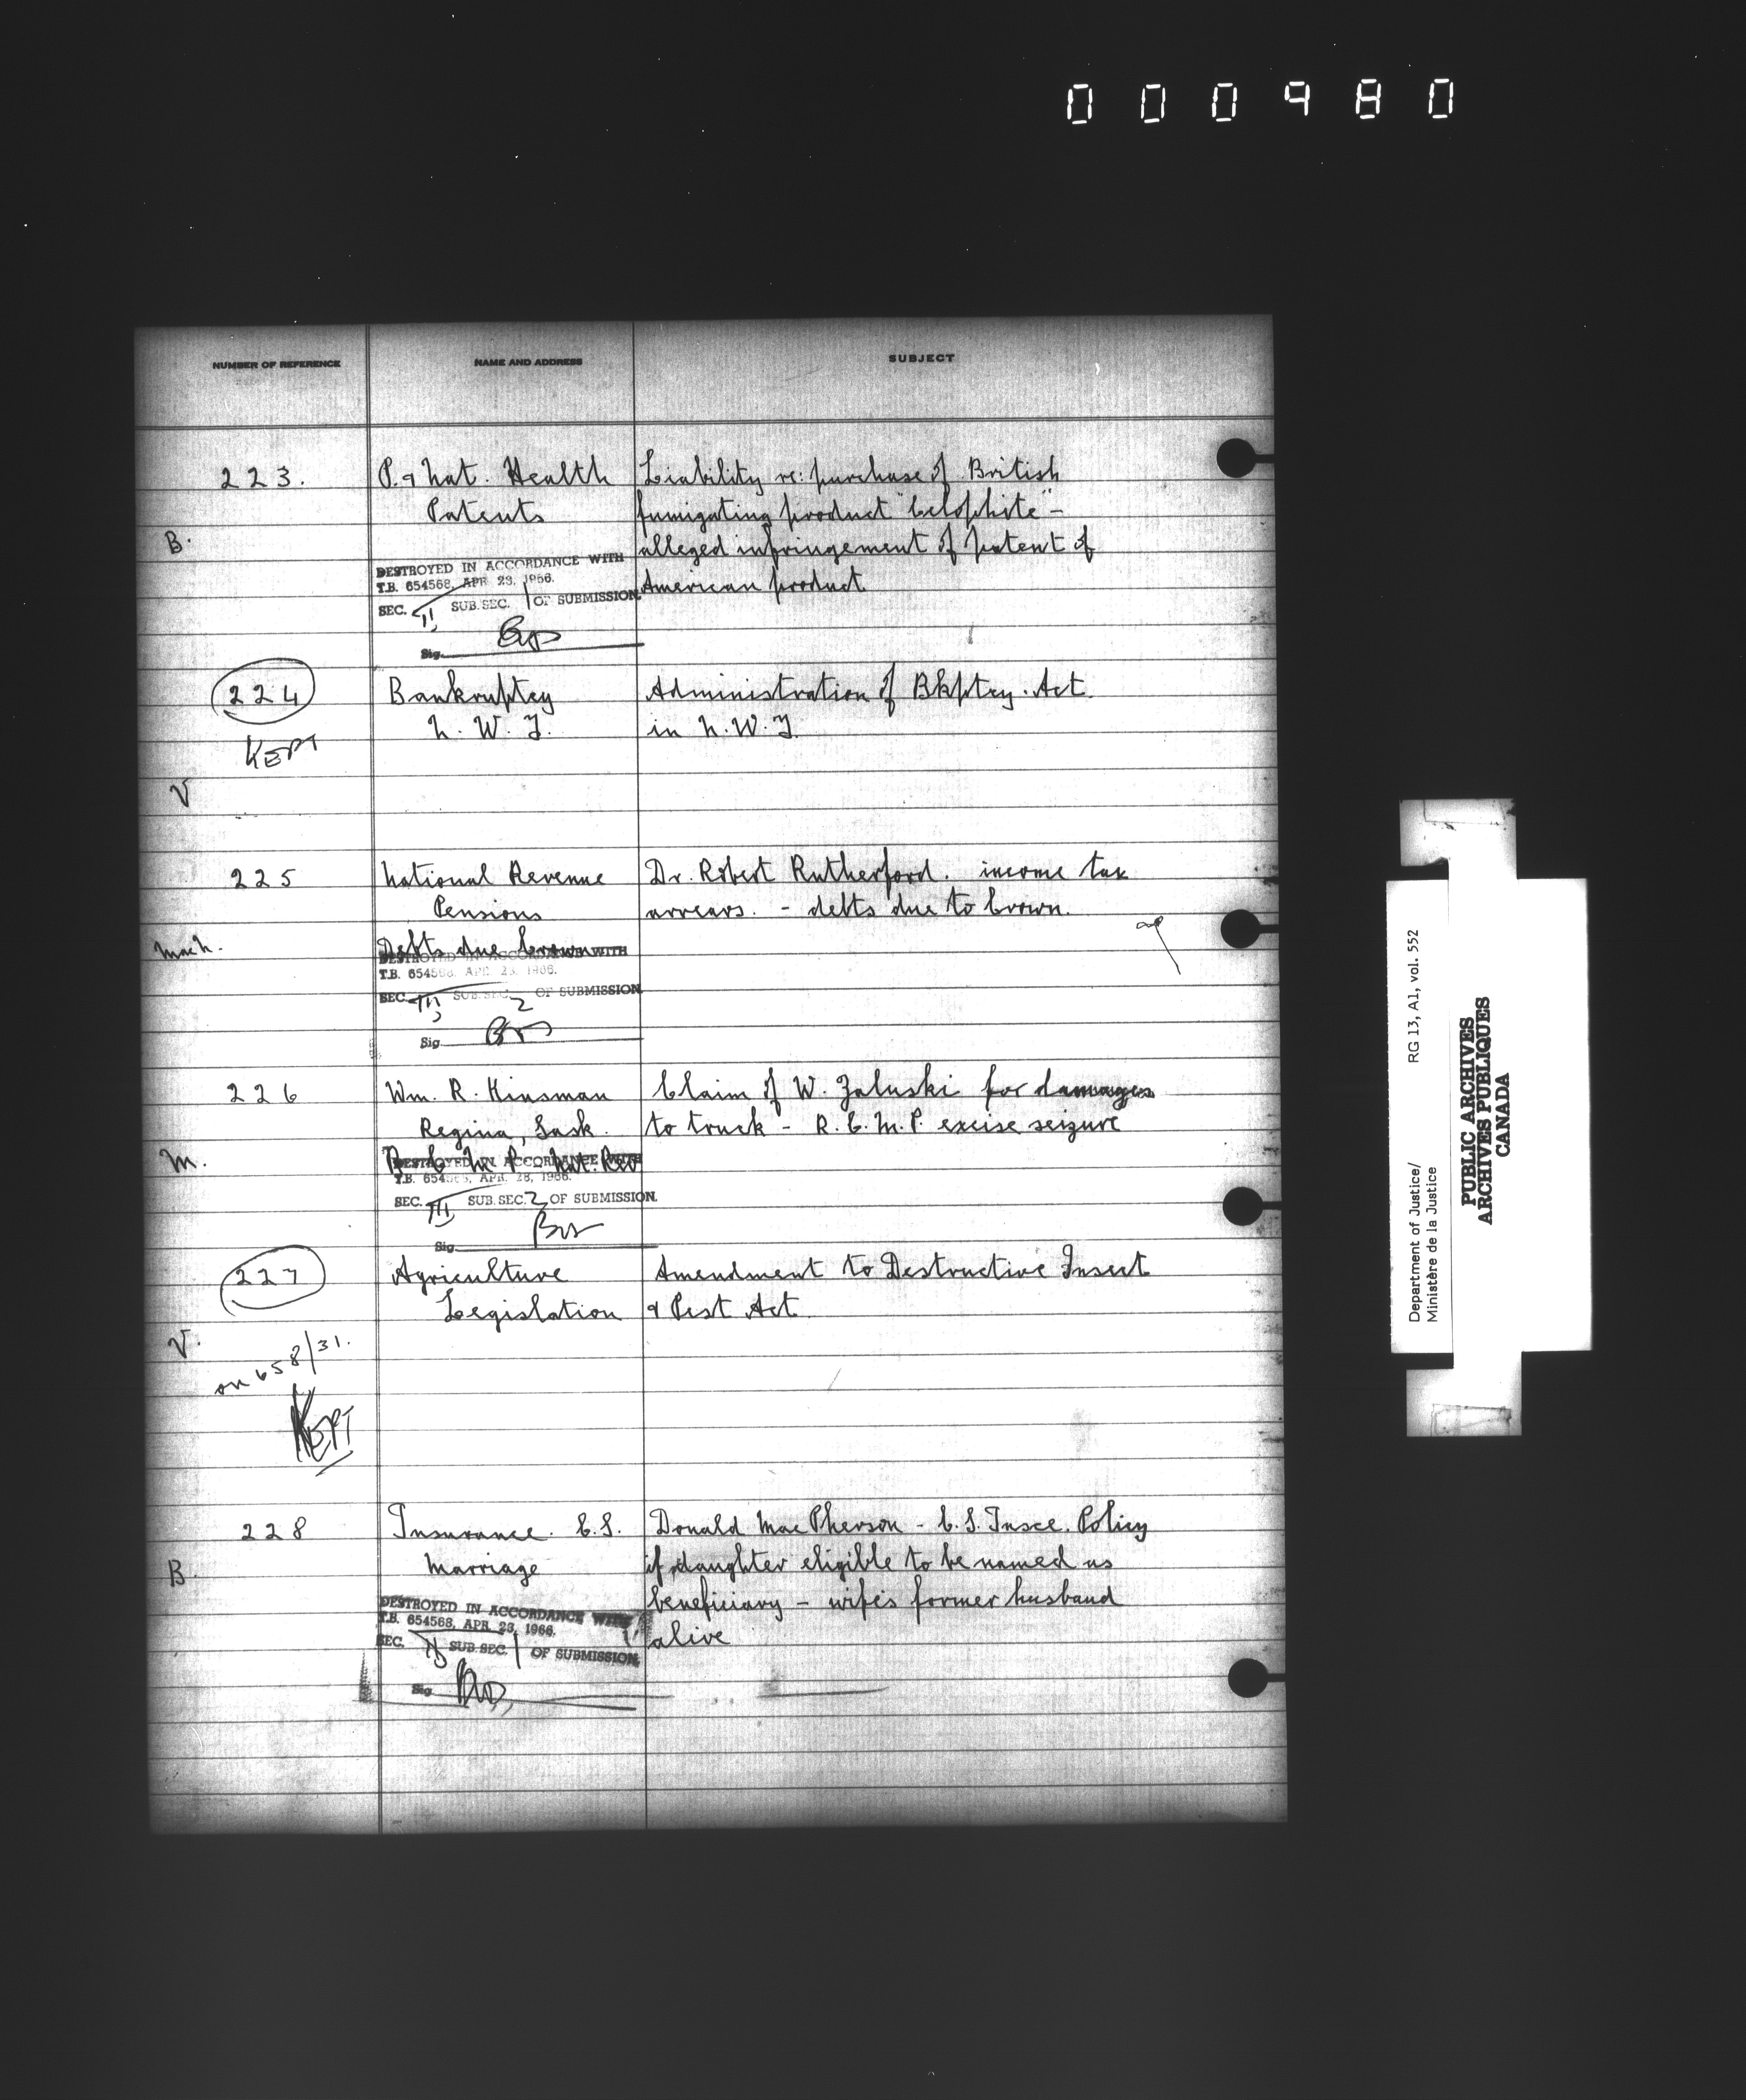 000980
NUMBER OF REFERENCE NAME AND ADDRESS SUBJECT
223. P. & Nat. Health Liability re: purchase of British
Patents fumigating product "Celophite" -
B. alleged infringement of patent of
American product
DESTROYED IN ACCORDANCE WITH
T.B. 654568, APR. 23, 1966.
SEC. II SUB. SEC. 1 OF SUBMISSION.
Sig.
224 Bankruptcy Administration of Bkptcy. Act
N. W. T. in N.W.T.
KEPT
V
225 National Revenue Dr. Robert Rutherford. income tax
Pensions arrears. - debts due to Crown.
Mach. Debts due Crown
DESTROYED IN ACCORDANCE WITH
T.B. 654568, APR. 23, 1966.
SEC. III SUB. SEC. 2 OF SUBMISSION
Sig.
226 Wm. R. Kinsman Claim of W. Zaluski for damages
Regina, Sask. to truck - R.C.M.P. excise seizure
M. R.C.M.P. Nat. Rev
DESTROYED IN ACCORDANCE WITH
T.B. 654568, APR. 23, 1966.
SEC. III SUB. SEC. 2 OF SUBMISSION.
Sig.
227 Agriculture Amendment to Destructive Insect
Legislation & Pest Act.
V.
on 658/31.
KEPT
228 Insurance. C.S. Donald MacPherson - C.S. Insce. Policy
B. Marriage if daughter eligible to be named as
beneficiary - wife's former husband
alive
DESTROYED IN ACCORDANCE WITH
T.B. 654568, APR. 23, 1966.
SEC. SUB. SEC. 1 OF SUBMISSION.
Sig.
Department of Justice/ RG 13, A1, vol. 552
Ministère de la Justice
PUBLIC ARCHIVES
ARCHIVES PUBLIQUES
CANADA